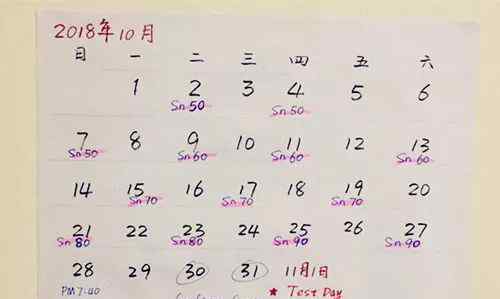 2018年10月
日 一 二 三 四 五 六
1 2 3 4 5 6
Sn50 Sn50
7 8 9 10 11 12 13
Sn50 Sn60 Sn60 Sn60
14 15 16 17 18 19 20
Sn70 Sn70 Sn70
21 22 23 24 25 26 27
Sn80 Sn80 Sn90 Sn90
28 29 30 31 11月1日
PM7:40 ★ Test Day